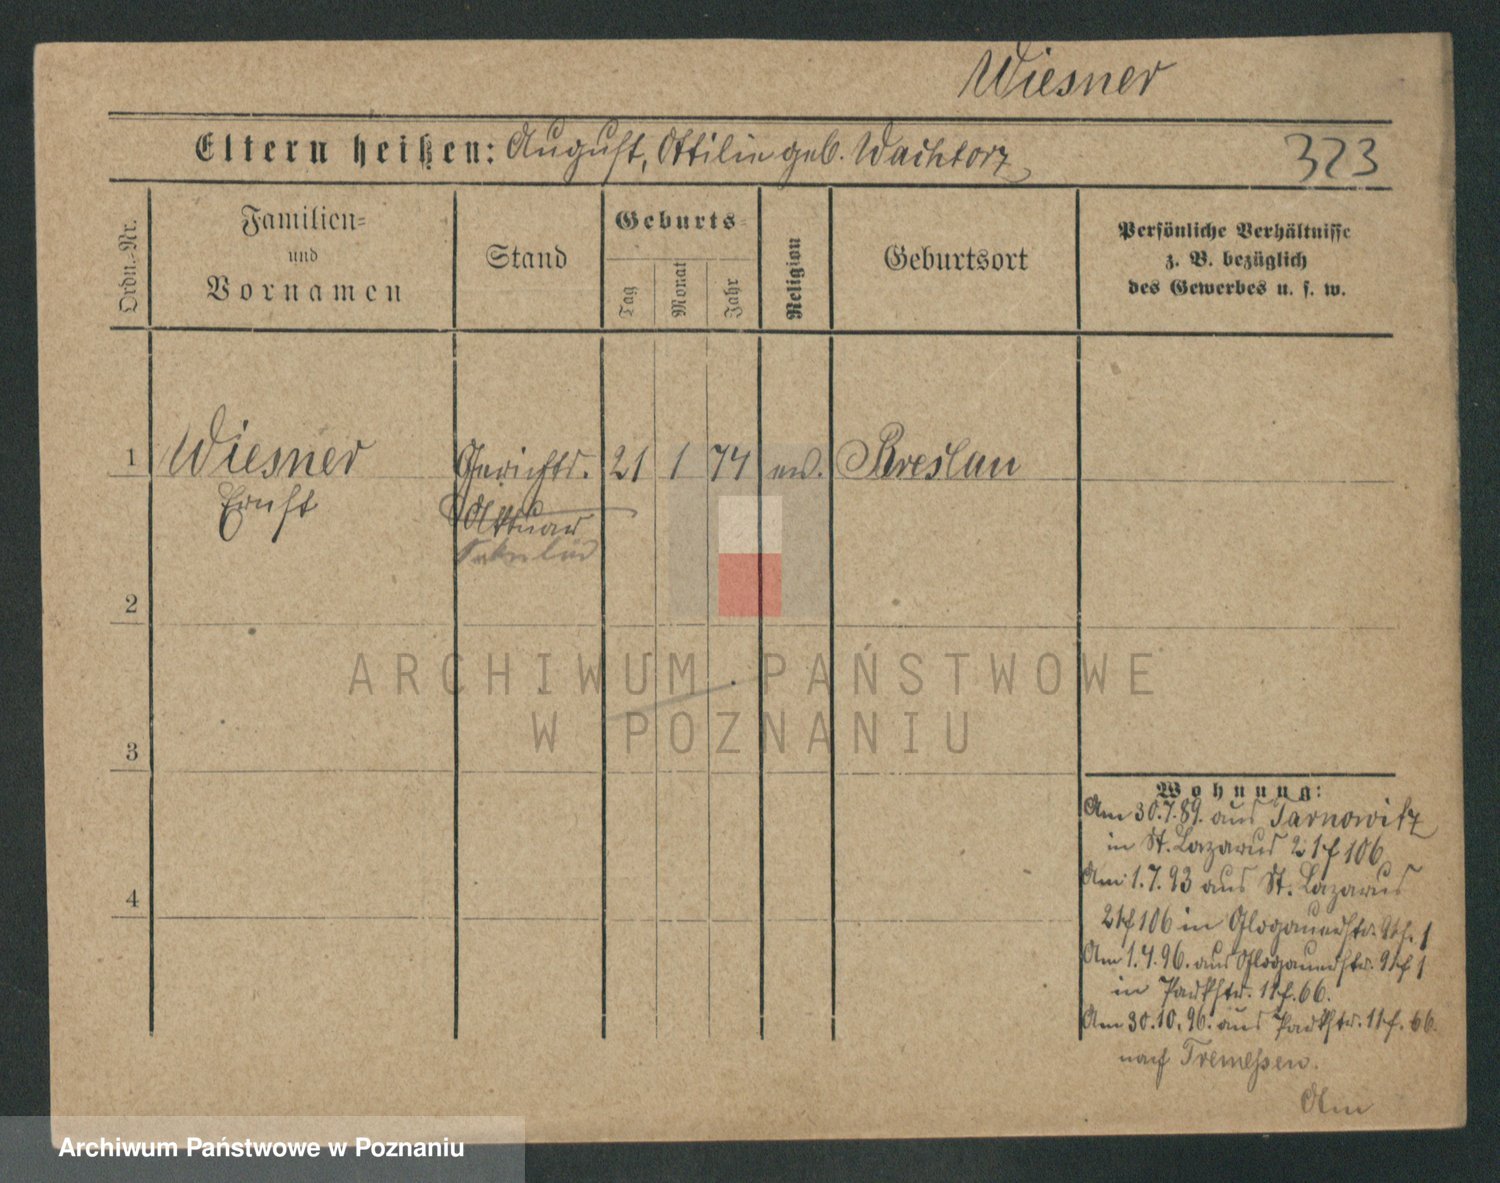 Wiesner
Eltern heißen: August, Ottilie geb. Wachtorz
323
Ordn.-Nr.
Familien-
und
Vornamen
Stand
Geburts-
Tag
Monat
Jahr
Religion
Geburtsort
Persönliche Verhältnisse
z. B. bezüglich
des Gewerbes u. s. w.
1 Wiesner Gerichts. 21 1 74 ev. Breslau
Ernst
Aktuar
2
ARCHIWUM PAŃSTWOWE
W POZNANIU
3
4
Wohnung:
Am 30.7.89. aus Tarnowitz
in St. Lazarus 106
Am 1.7.93 aus St. Lazarus
106 in Glogauerstr. 1
Am 1.4.96. aus Glogauerstr. 1
in Parkstr. 66.
Am 30.10.96. aus Parkstr. 66.
nach Tremessen.
Am
Archiwum Państwowe w Poznaniu